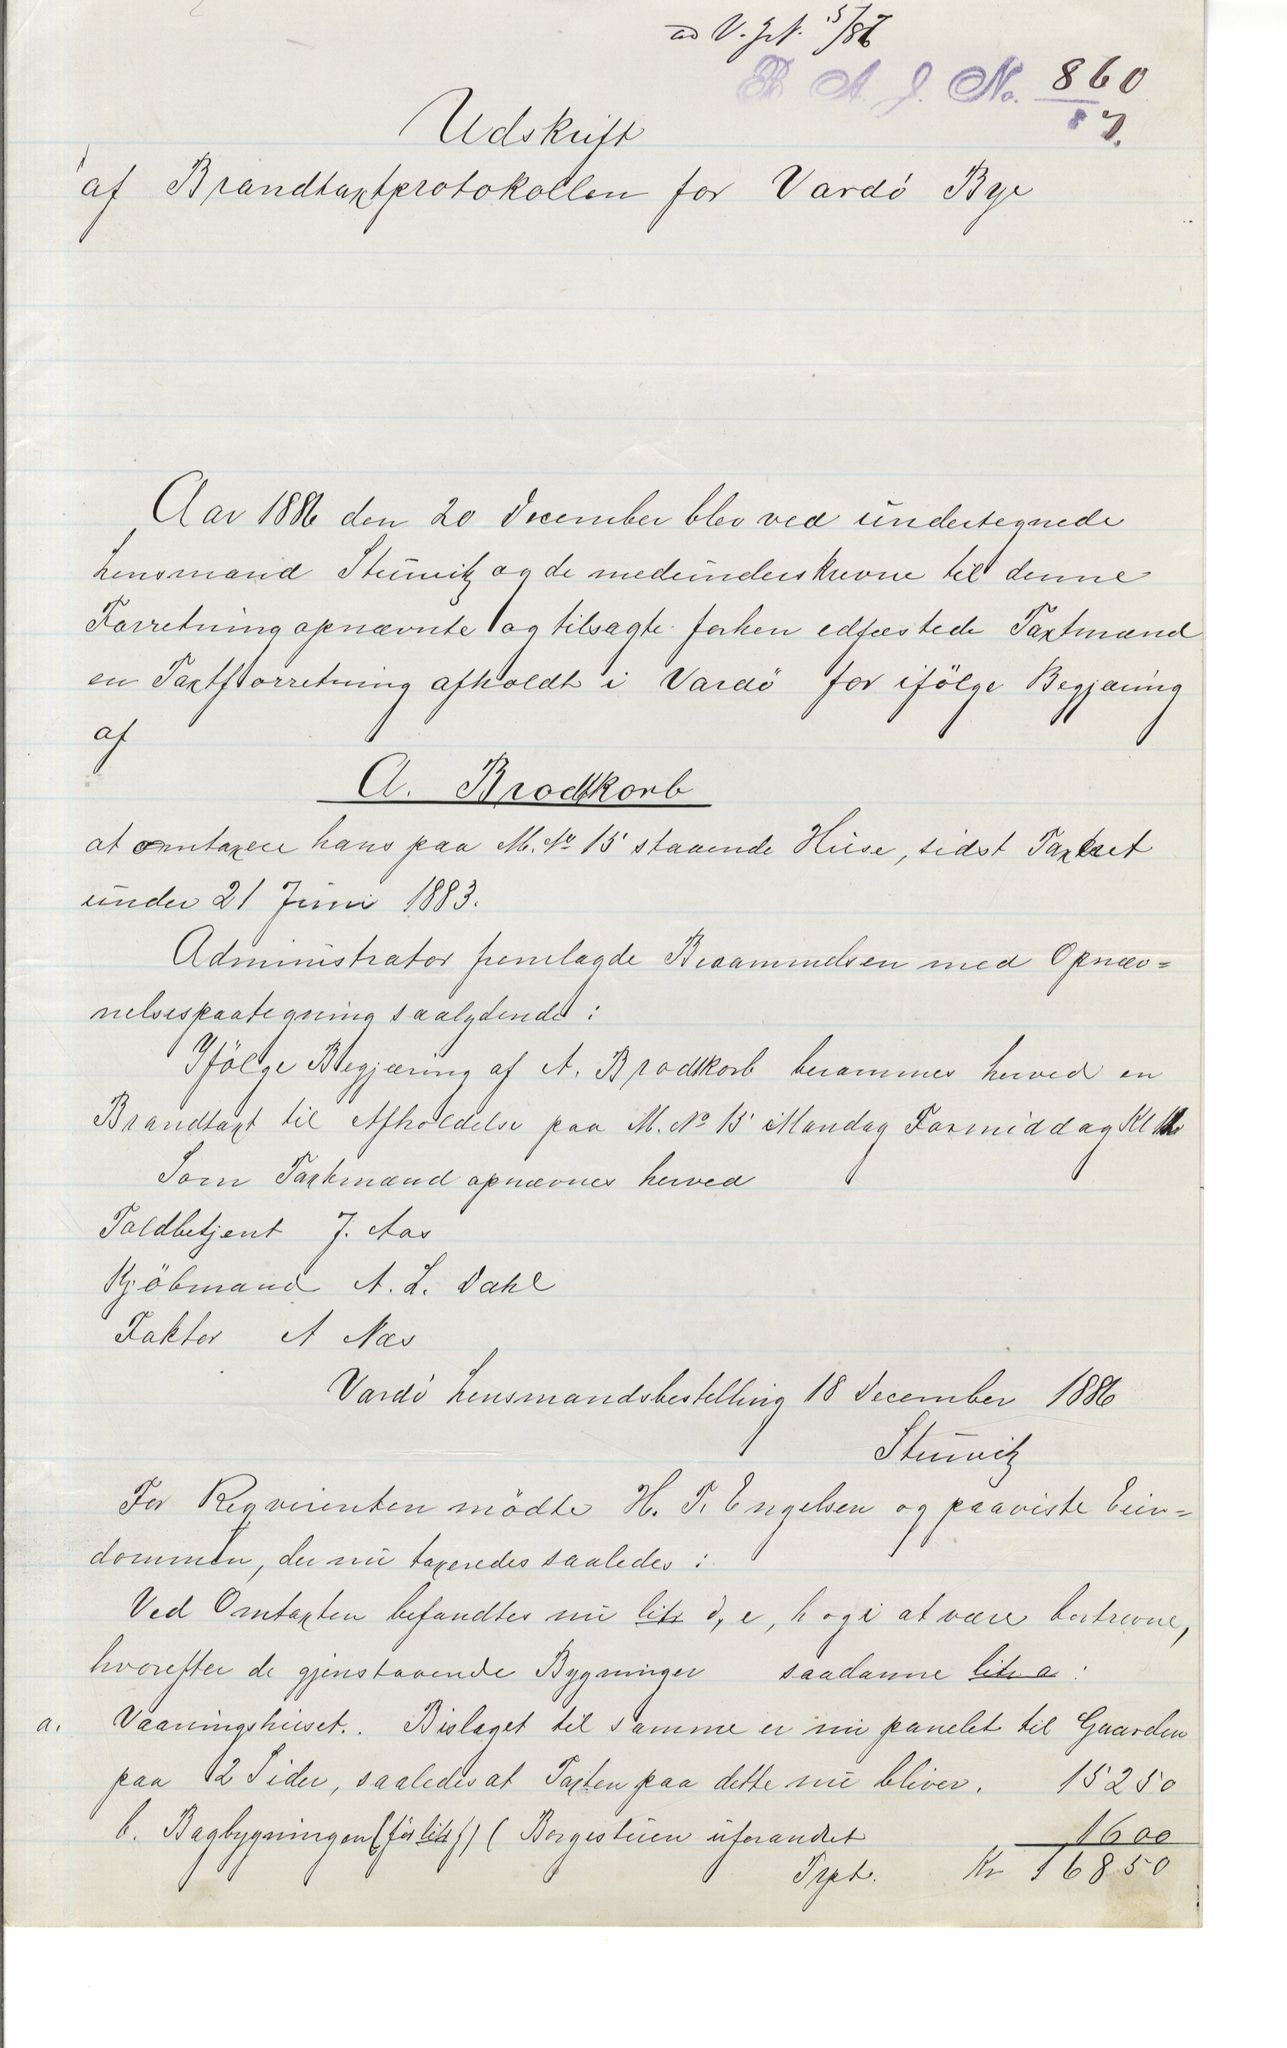 ad V. J. N. 5/87
B A J. No. 860
87.
Udskrift
af Brandtaxtprotokollen for Vardö Bye
Aar 1886 den 20 December blev ved undertegnede
Lensmand Stuwitz og de medunderskrevne til denne
Forretning opnævnte og tilsagte forhen edfæstede Taxtmænd
en Taxtforretning afholdt i Vardö for ifölge Begjæring
af
A. Brodtkorb
at omtaxere hans paa M. No 15 staaende Huse, sidst Taxeret
under 21 Juni 1883.
Administrator fremlagde Berammelsen med Opnæv=
nelsespaategning saalydende:
Ifölge Begjæring af A. Brodtkorb berammes herved en
Brandtaxt til Afholdelse paa M. No 15 Mandag Formiddag Kl
Som Taxtmænd opnævnes herved
Toldbetjent J. Aas
Kjöbmand A. L. Dahl
Faktor A Næs
Vardö Lensmandsbestilling 18 December 1886
Stuwitz
For Reqvirenten mödte H. T. Engelsen og paaviste Eien=
dommen, der nu taxeredes saaledes:
Ved Omtaxten befandtes nu litr d, e, h og i at være bortrevne,
hvorefter de gjenstaaende Bygninger saadanne litr a:
a. Vaaningshuset.. Bislaget til samme er nu panelet til Gaarden
paa 2 Sider, saaledes at Taxten paa dette nu bliver. 15250
b. Bagbygningen (för litr f) (Borgestuen uforandret 1600
Trpt. Kr 16850